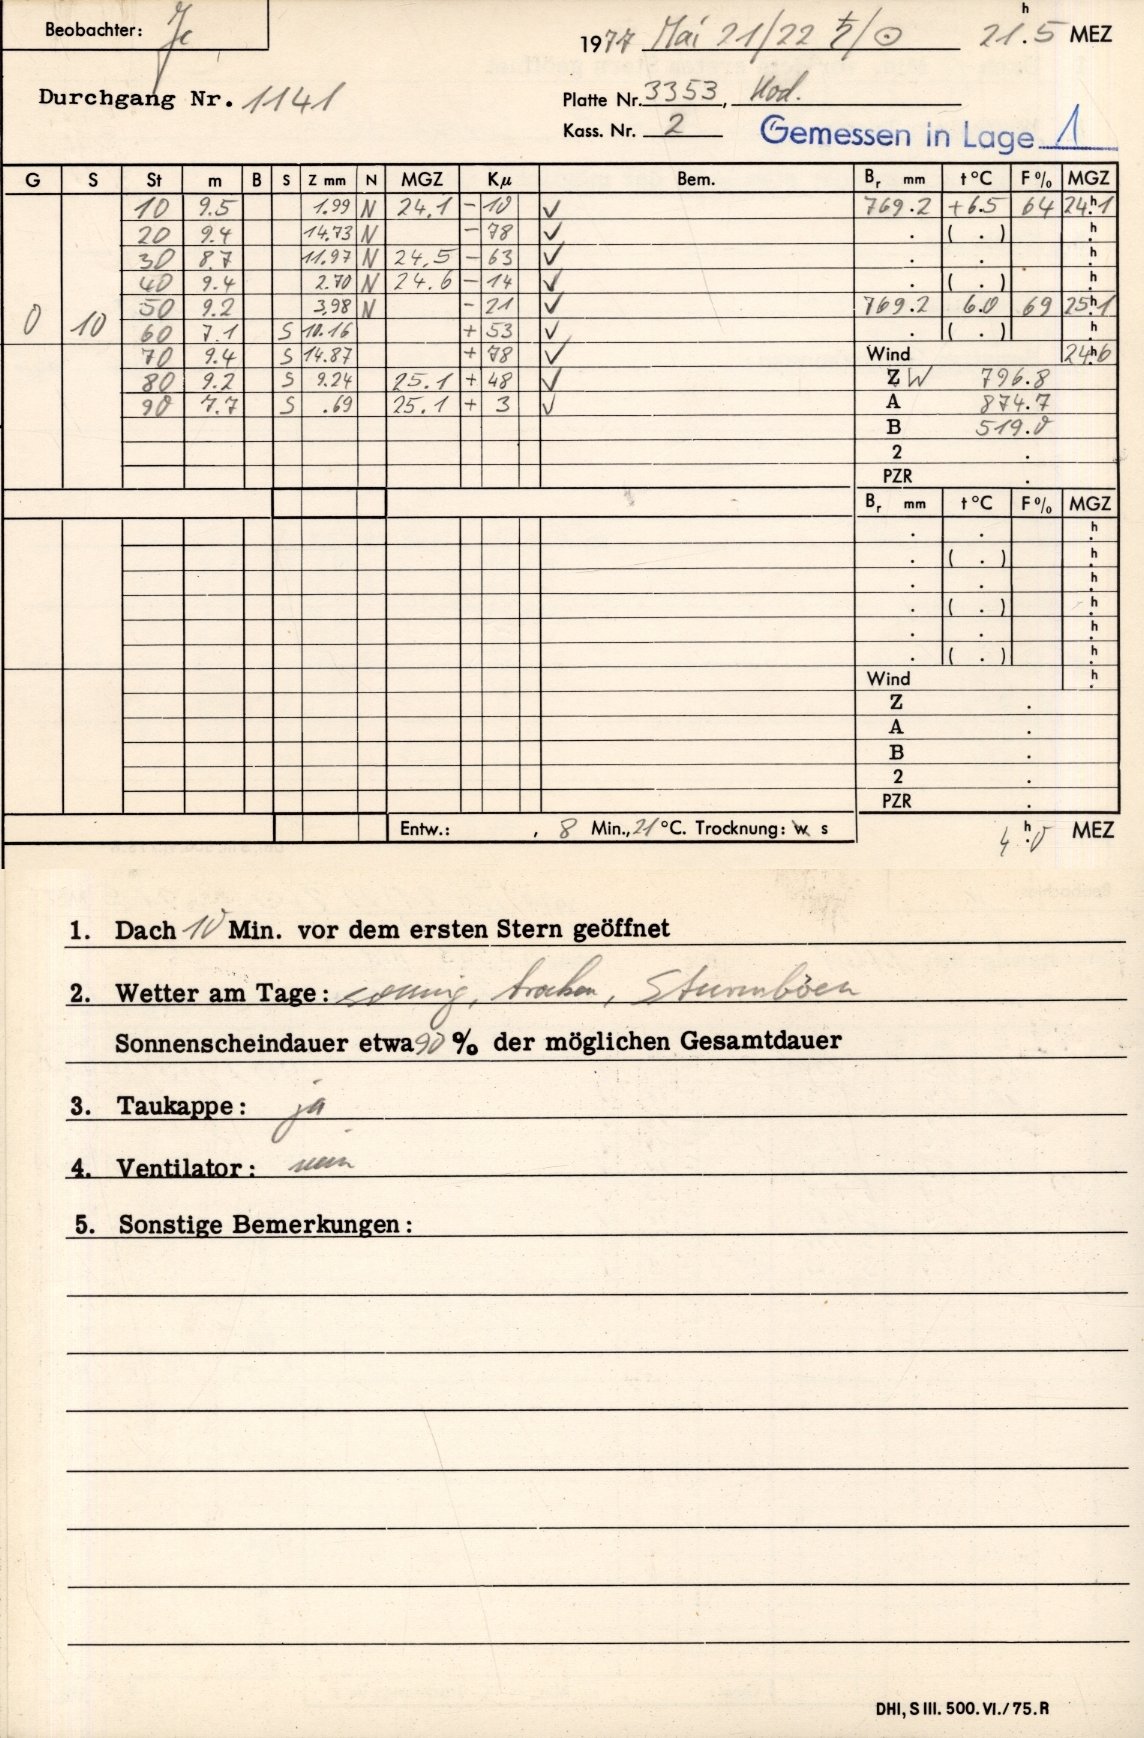 Beobachter: Je
1977 Mai 21/22 ♄/☉ 21.5 h MEZ
Durchgang Nr. 1141
Platte Nr. 3353, Kod.
Kass. Nr. 2
Gemessen in Lage 1
G S St m B S Z mm N MGZ Kμ Bem. Br mm t °C F % MGZ
10 9.5 1.99 N 24.1 - 10 ✓ 769.2 +6.5 64 24.h1
20 9.4 14.73 N - 78 ✓ . ( . ) h.
30 8.7 11.97 N 24.5 - 63 ✓ . . h.
40 9.4 2.70 N 24.6 - 14 ✓ . ( . ) h.
50 9.2 3.98 N - 21 ✓ 769.2 6.0 69 25.h1
0 10 60 7.1 S 10.16 + 53 ✓ . ( . ) h.
70 9.4 S 14.87 + 78 ✓ Wind 24.h6
80 9.2 S 9.24 25.1 + 48 ✓ Z W 796.8
90 7.7 S .69 25.1 + 3 ✓ A 874.7
B 519.0
2 .
PZR .
Br mm t °C F % MGZ
. . h.
. ( . ) h.
. . h.
. ( . ) h.
. . h.
. ( . ) h.
Wind h.
Z .
A .
B .
2 .
PZR .
Entw.: , 8 Min., 21 °C. Trocknung: w s
4.h0 MEZ
1. Dach 10 Min. vor dem ersten Stern geöffnet
2. Wetter am Tage: sonnig, trocken, Sturmböen
Sonnenscheindauer etwa 90 % der möglichen Gesamtdauer
3. Taukappe: ja
4. Ventilator: nein
5. Sonstige Bemerkungen:
DHI, S III. 500. VI./75. R